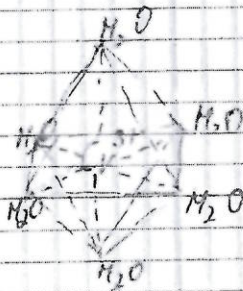 H₂O
H₂O
H₂O
H₂O
H₂O